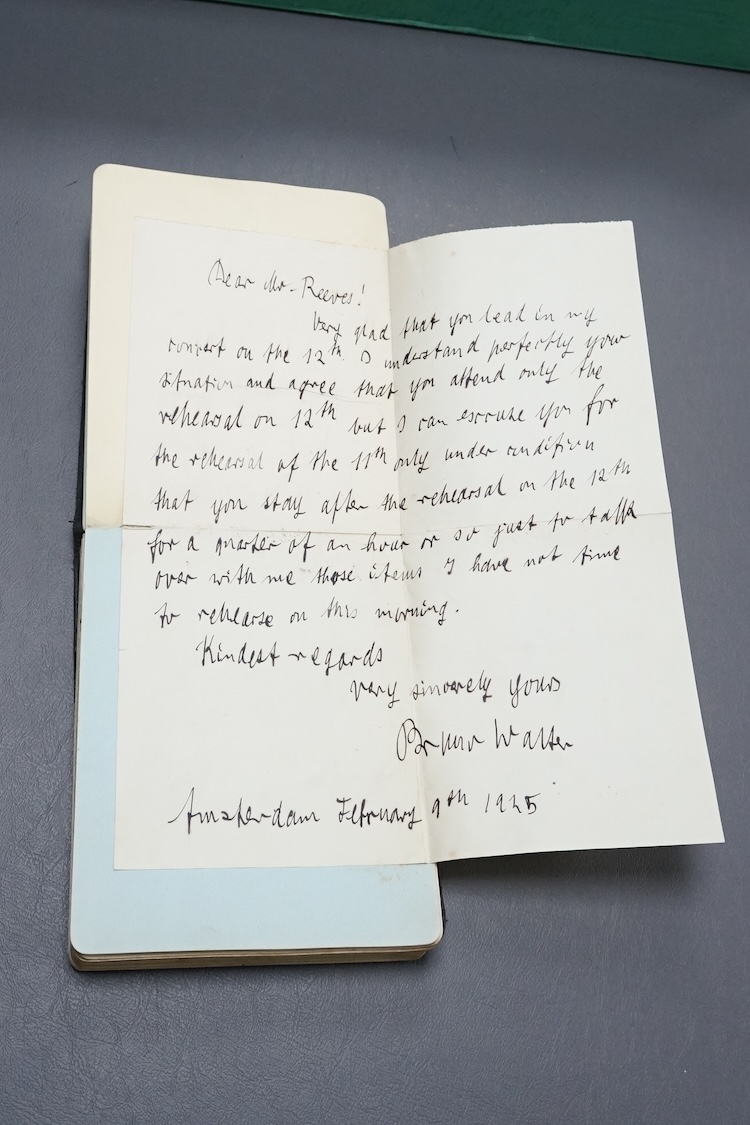 Dear Mr. Reeves!
Very glad that you lead in my
concert on the 12th. I understand perfectly your
situation and agree that you attend only the
rehearsal on 12th but I can escouse you for
the rehearsal of the 11th only under condition
that you stay after the rehearsal on the 12th
for a quarter of an hour or so just to talk
over with me those items I have not time
to rehearse on this morning.
Kindest regards
very sincerely yours
Bruno Walter
Amsterdam February 9th 1925